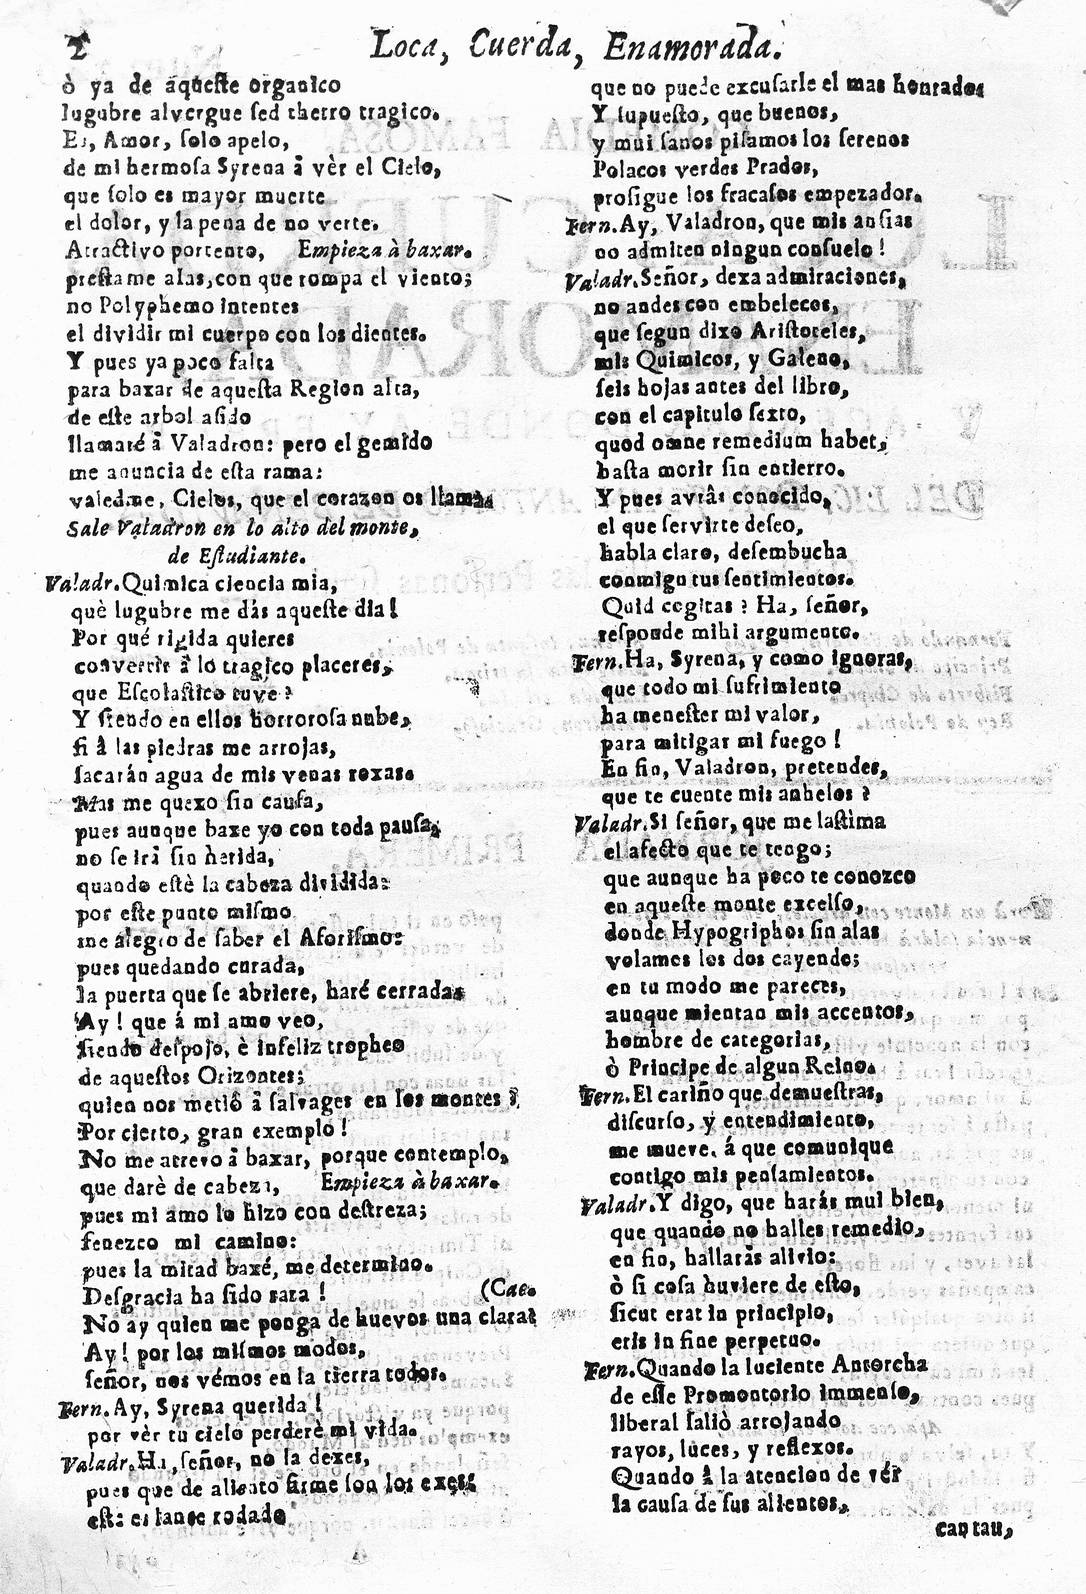 2 Loca, Cuerda, Enamorada.
ò ya de aqueſte organico
lugubre alvergue ſed theтro tragico.
Ea, Amor, ſolo apelo,
de mi hermoſa Syrena â vèr el Cielo,
que ſolo es mayor muerte
el dolor, y la pena de no verte.
Atractivo portento, Empieza à baxar.
preſtame alas, con que rompa el viento;
no Polyphemo intentes
el dividir mi cuerpo con los dientes.
Y pues ya poco falta
para baxar de aqueſta Region alta,
de eſte arbol aſido
llamaré â Valadron: pero el gemido
me anuncia de eſta rama:
valedme, Cielos, que el corazon os llama.
Sale Valadron en lo alto del monte,
de Eſtudiante.
Valadr. Quimica ciencia mia,
què lugubre me dás aqueſte dia!
Por qué rigida quieres
convertir â lo tragico placeres,
que Eſcolaſtico tuve?
Y ſiendo en ellos horroroſa nube,
ſi â las piedras me arrojas,
ſacarán agua de mis venas roxas.
Mas me quexo ſin cauſa,
pues aunque baxe yo con toda pauſa,
no ſe irâ ſin herida,
quando eſtè la cabeza dividida:
por eſte punto miſmo
me alegro de ſaber el Aforiſmo:
pues quedando curada,
la puerta que ſe abriere, haré cerrada.
Ay! que á mi amo veo,
ſiendo deſpojo, è infeliz tropheo
de aqueſtos Orizontes;
quien nos metiô â ſalvages en los montes?
Por cierto, gran exemplo!
No me atrevo â baxar, porque contemplo,
que darè de cabeza, Empieza à baxar.
pues mi amo lo hizo con deſtreza;
fenezco mi camino:
pues la mitad baxé, me determino.
Deſgracia ha ſido rara! (Cae.
No ay quien me ponga de huevos una clara?
Ay! por los miſmos modos,
ſeñor, nos vémos en la tierra todos.
Fern. Ay, Syrena querida!
por vèr tu cielo perderè mi vida.
Valadr. Ha, ſeñor, no la dexes,
pues que de aliento firme ſon los exes:
eſte es lance rodado
que no puede excuſarle el mas honrado.
Y ſupueſto, que buenos,
y mui ſanos piſamos los ſerenos
Polacos verdes Prados,
proſigue los fracaſos empezados.
Fern. Ay, Valadron, que mis anſias
no admiten ningun conſuelo!
Valadr. Señor, dexa admiraciones,
no andes con embelecos,
que ſegun dixo Ariſtoteles,
mis Quimicos, y Galeno,
ſeis hojas antes del libro,
con el capitulo ſexto,
quod omne remedium habet,
haſta morir ſin entierro.
Y pues avrâs conocido,
el que ſervirte deſeo,
habla claro, deſembucha
conmigo tus ſentimientos.
Quid cogitas? Ha, ſeñor,
reſponde mihi argumento.
Fern. Ha, Syrena, y como ignoras,
que todo mi ſufrimiento
ha meneſter mi valor,
para mitigar mi fuego!
En fin, Valadron, pretendes,
que te cuente mis anhelos?
Valadr. Si ſeñor, que me laſtima
el afecto que te tengo;
que aunque ha poco te conozco
en aqueſte monte excelſo,
donde Hypogriphos ſin alas
volamos los dos cayendo;
en tu modo me pareces,
aunque mientan mis accentos,
hombre de categorias,
ò Principe de algun Reino.
Fern. El cariño que demueſtras,
diſcurſo, y entendimiento,
me mueve, á que comunique
contigo mis penſamientos.
Valadr. Y digo, que harás mui bien,
que quando no halles remedio,
en fin, hallarâs alivio:
ò ſi coſa huviere de eſto,
ſicut erat in principio,
eris in fine perpetuo.
Fern. Quando la luciente Antorcha
de eſſe Promontorio immenſo,
liberal ſaliò arrojando
rayos, lùces, y reflexos.
Quando â la atencion de vér
la cauſa de ſus alientos,
cantan,